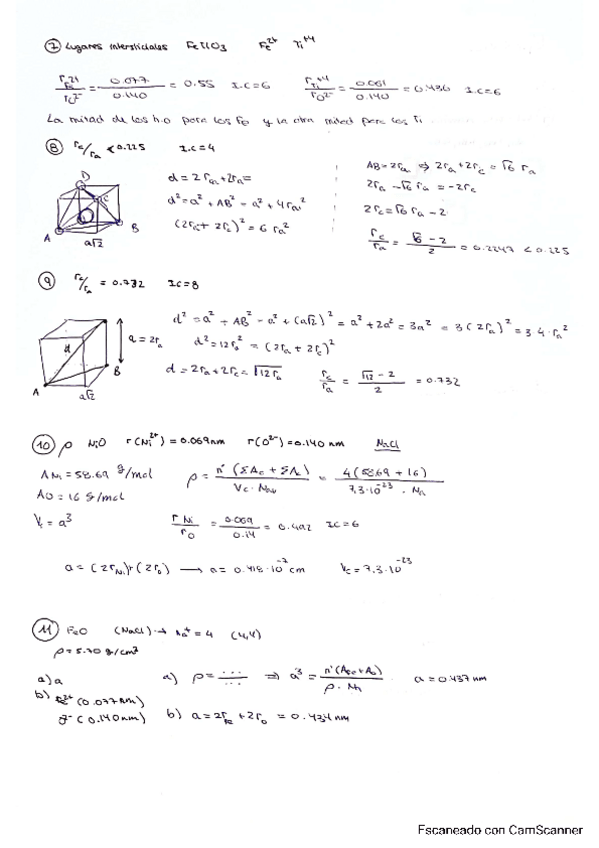 7 Lugares intersticiales FeTiO3 Fe2+ Ti+4
rFe2+/rO2- = 0.077/0.140 = 0.55 I.C=6 rTi+4/rO2- = 0.061/0.140 = 0.436 I.C=6
La mitad de los h.o para los Fe y la otra mitad para los Ti
8 rc/ra < 0.225 I.C=4
D
C
A
B
a√2
d = 2ra + 2ra =
d² = a² + AB² - a² + 4ra²
(2ra + 2rc)² = 6 ra²
AB = 2ra ⇒ 2ra + 2rc = √6 ra
2ra - √6 ra = -2rc
2rc = √6 ra - 2
rc/ra = (√6 - 2)/2 = 0.2247 < 0.225
9 rc/ra = 0.732 I.C=8
d
a = 2ra
A
B
a√2
d² = a² + AB² - a² + (a√2)² = a² + 2a² = 3a² = 3(2ra)² = 3·4·ra²
d² = 12ra² = (2ra + 2rc)²
d = 2ra + 2rc = √12 ra rc/ra = (√12 - 2)/2 = 0.732
10 ρ NiO r(Ni2+) = 0.069nm r(O2-) = 0.140 nm NaCl
ANi = 58.69 g/mol
AO = 16 g/mol
ρ = n'(ΣAc + ΣAa)/(Vc · Nav) = 4(58.69 + 16)/(7.3·10^-23 · Na)
Vc = a³ rNi/rO = 0.069/0.14 = 0.492 I.C=6
a = (2rNi) + (2rO) → a = 0.418·10^-7 cm Vc = 7.3·10^-23
11 FeO (NaCl) → = 4 (4,4)
ρ = 5.70 g/cm³
a) a
b) Fe2+ (0.077nm)
(0.140nm)
a) ρ = ... ⇒ a³ = n'(AFe + AO)/(ρ · Na) a = 0.437 nm
b) a = 2rFe + 2rO = 0.434 nm
Escaneado con CamScanner